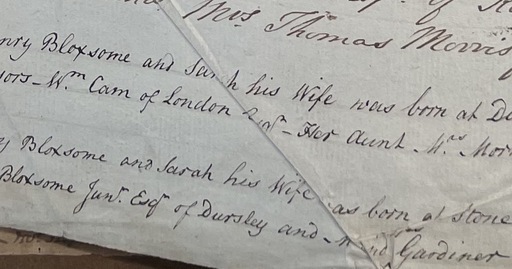 Mrs Thomas Morris
enry Bloxsome and Sarah his Wife was born at Du
sors - Wm Cam of London Esqr - Her Aunt - Mrs Morr
y Bloxsome and Sarah his Wife was born at Stone
Bloxsome Junr. Esqr of Dursley and - Gardiner